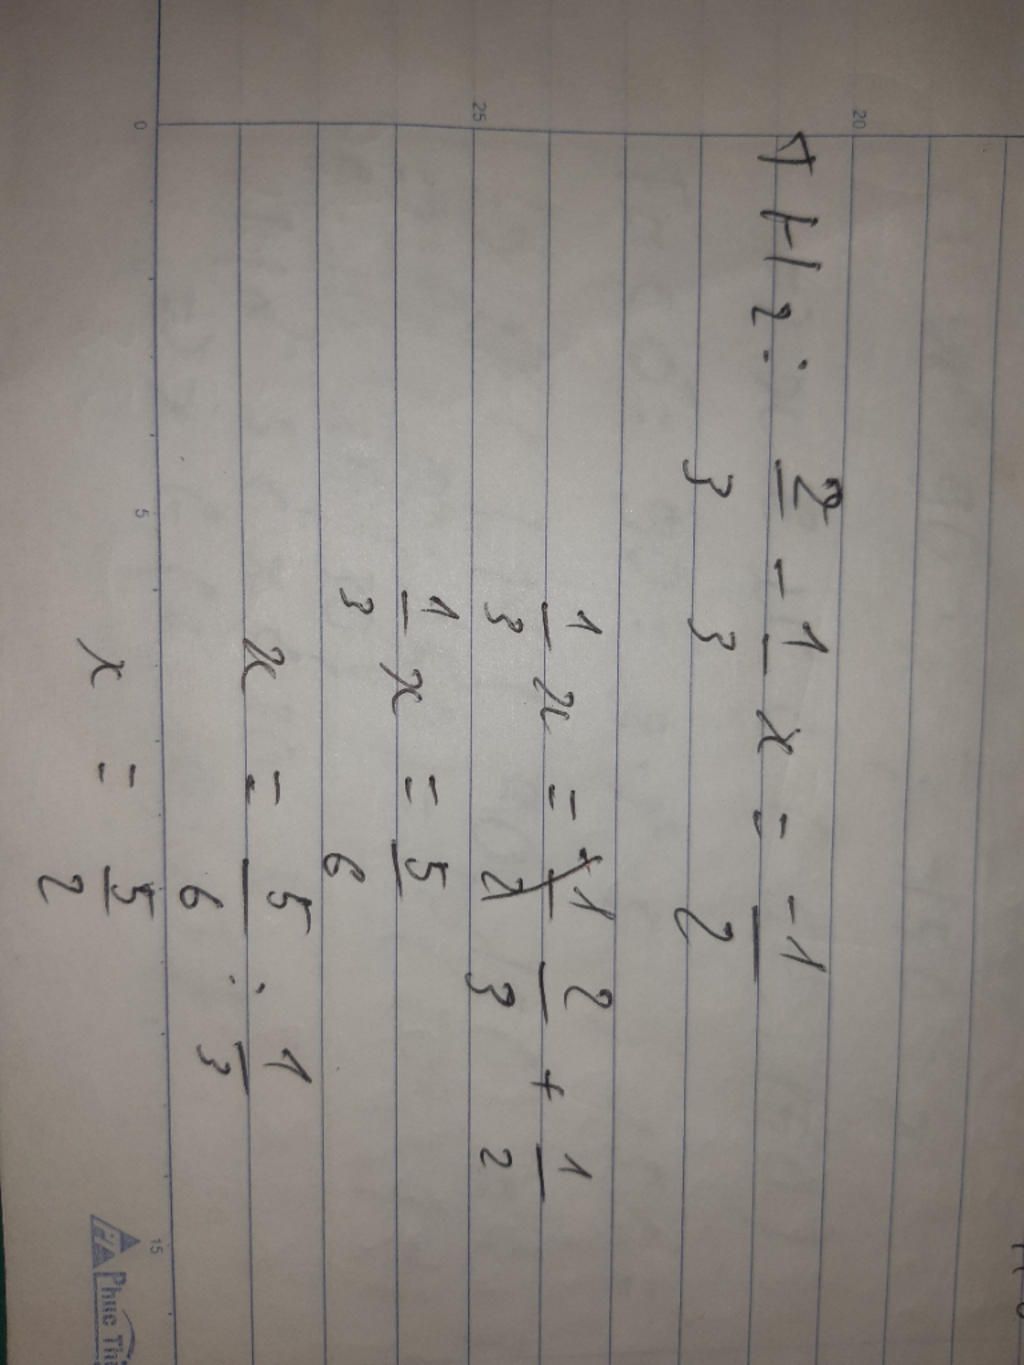 TH2: 2/3 - 1/3 x = -1/2
1/3 x = 2/3 + 1/2
1/3 x = 5/6
x = 5/6 : 1/3
x = 5/2
20
25
0
5
15
Phuc Th